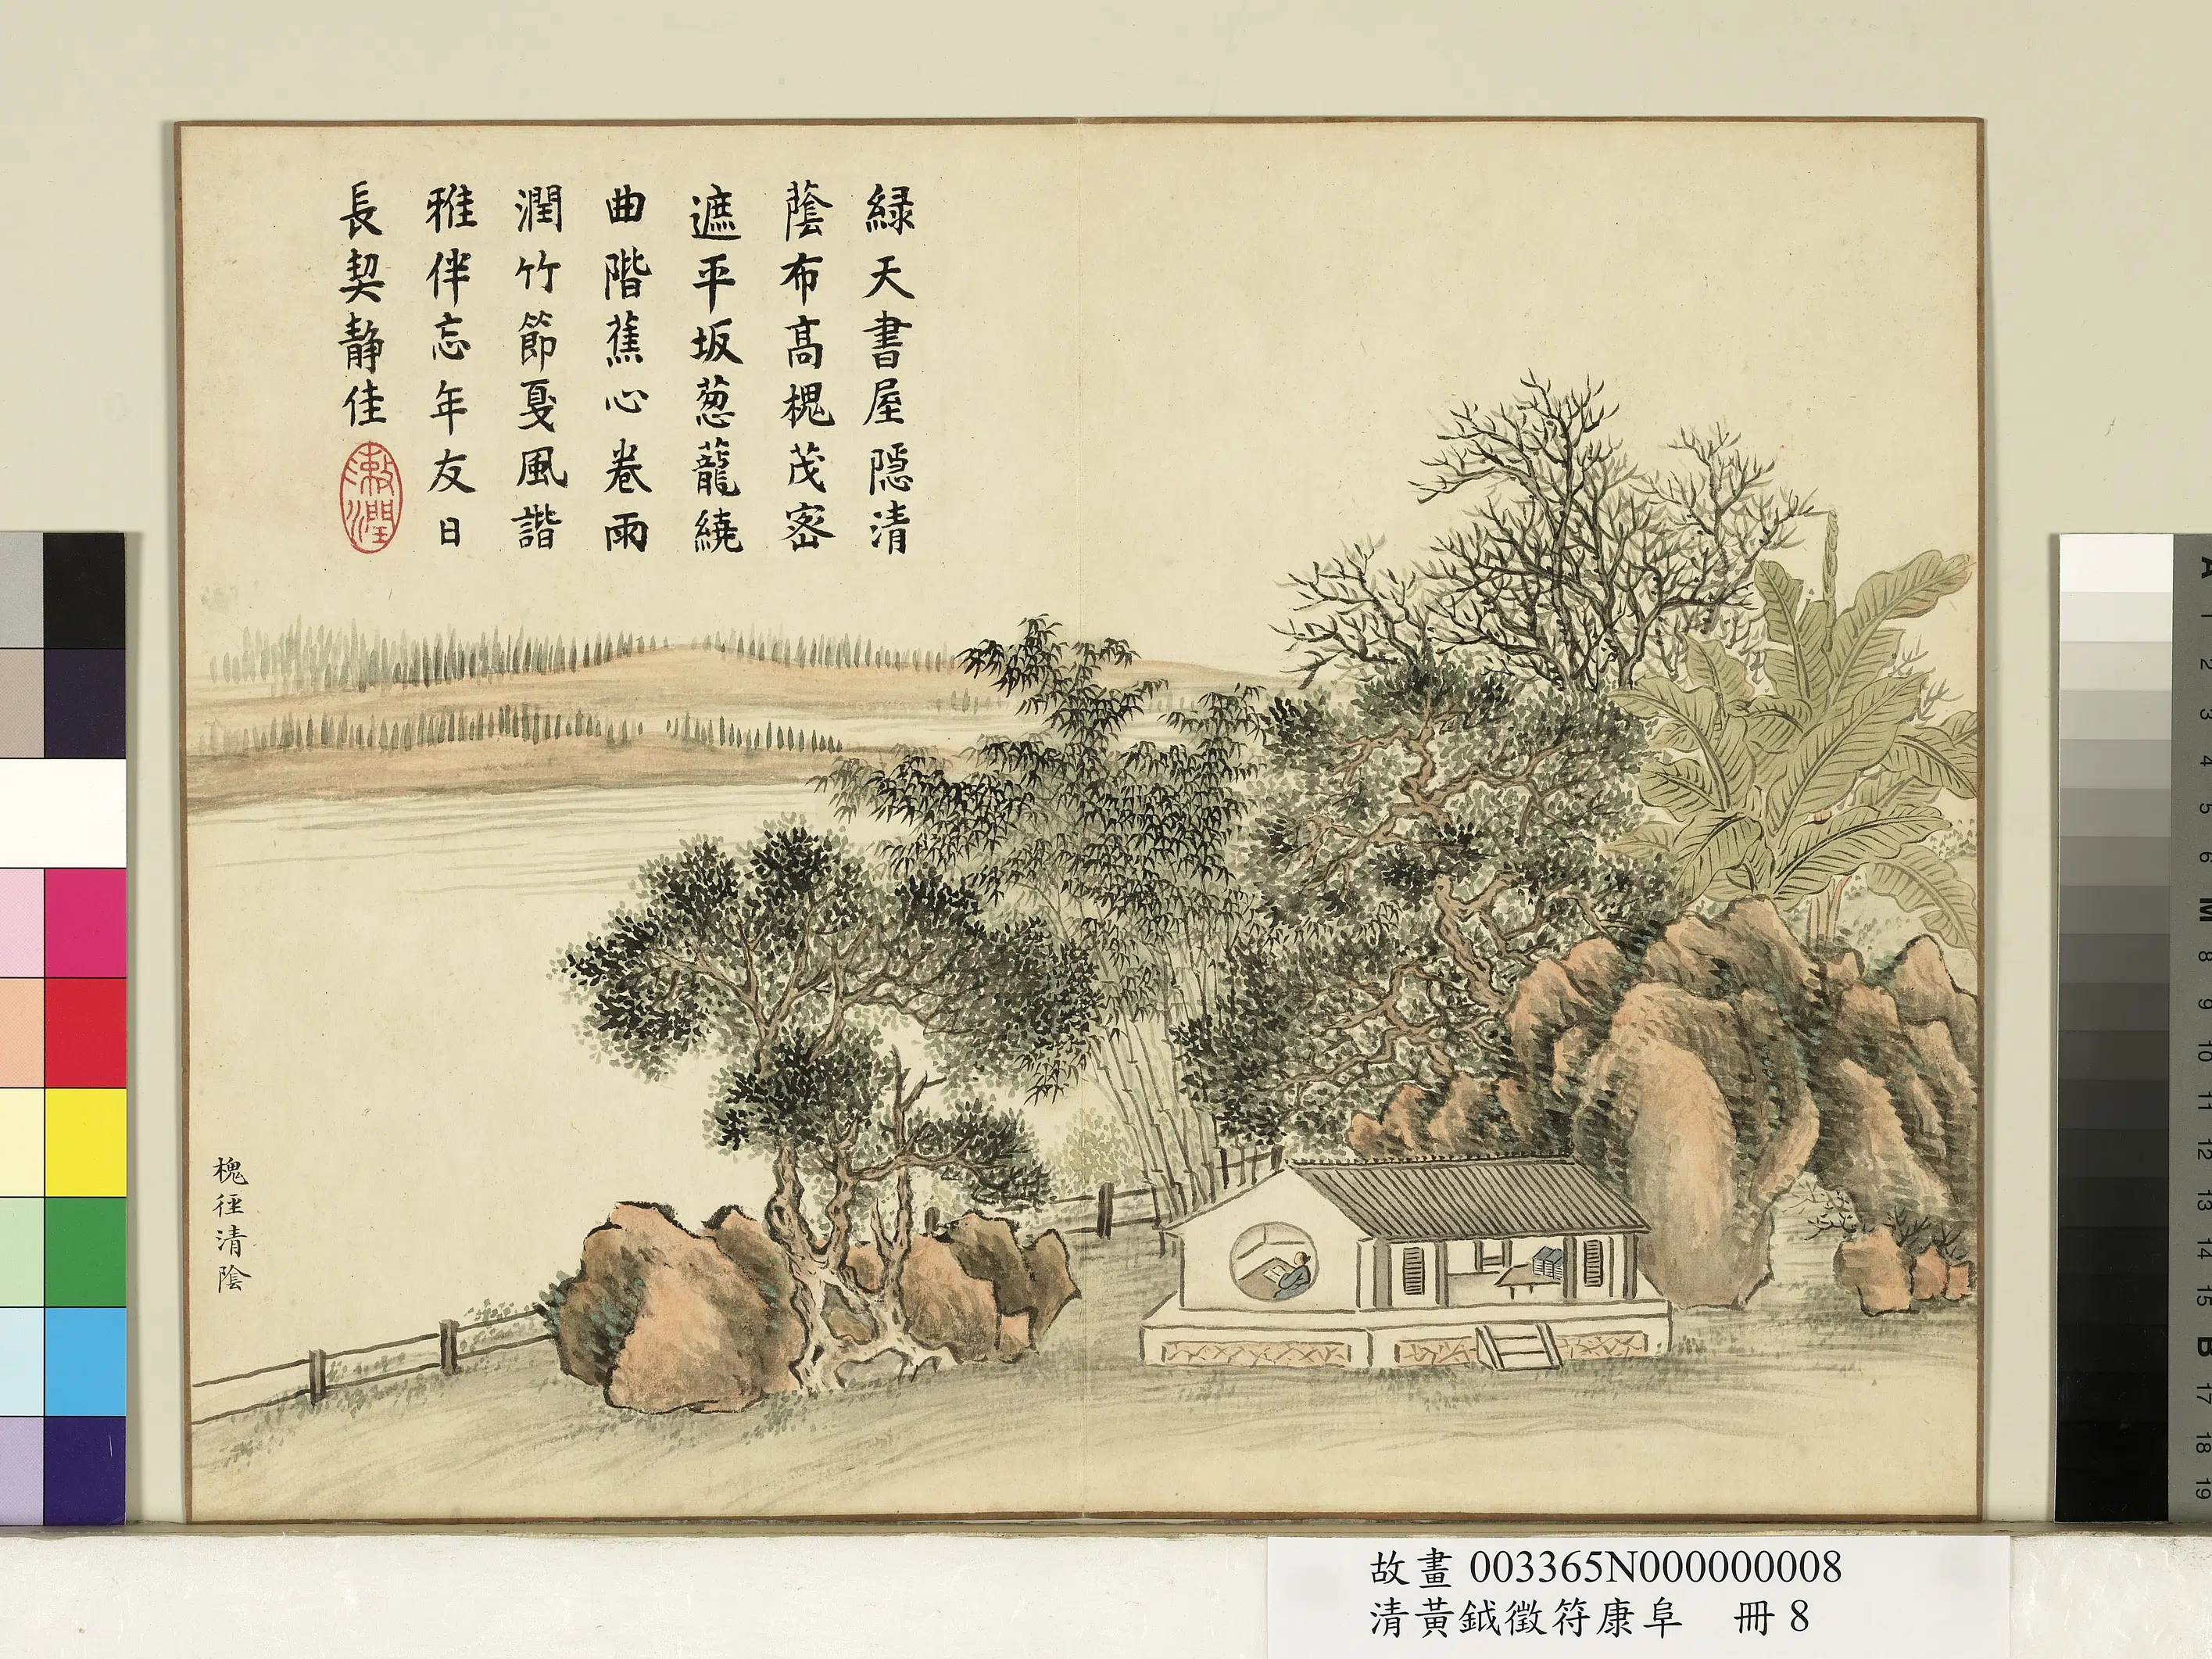 緑天書屋隱清
蔭布高槐茂密
遮平坂葱蘢繞
曲階蕉心卷雨
潤竹節戛風諧
雅伴忘年友日
長契静佳
漱潤
槐徑清陰
故畫 003365N000000008
清黃鉞徵符康阜 冊 8
A
1
2
3
4
5
6
M
8
9
10
11
12
13
14
15
B
17
18
19